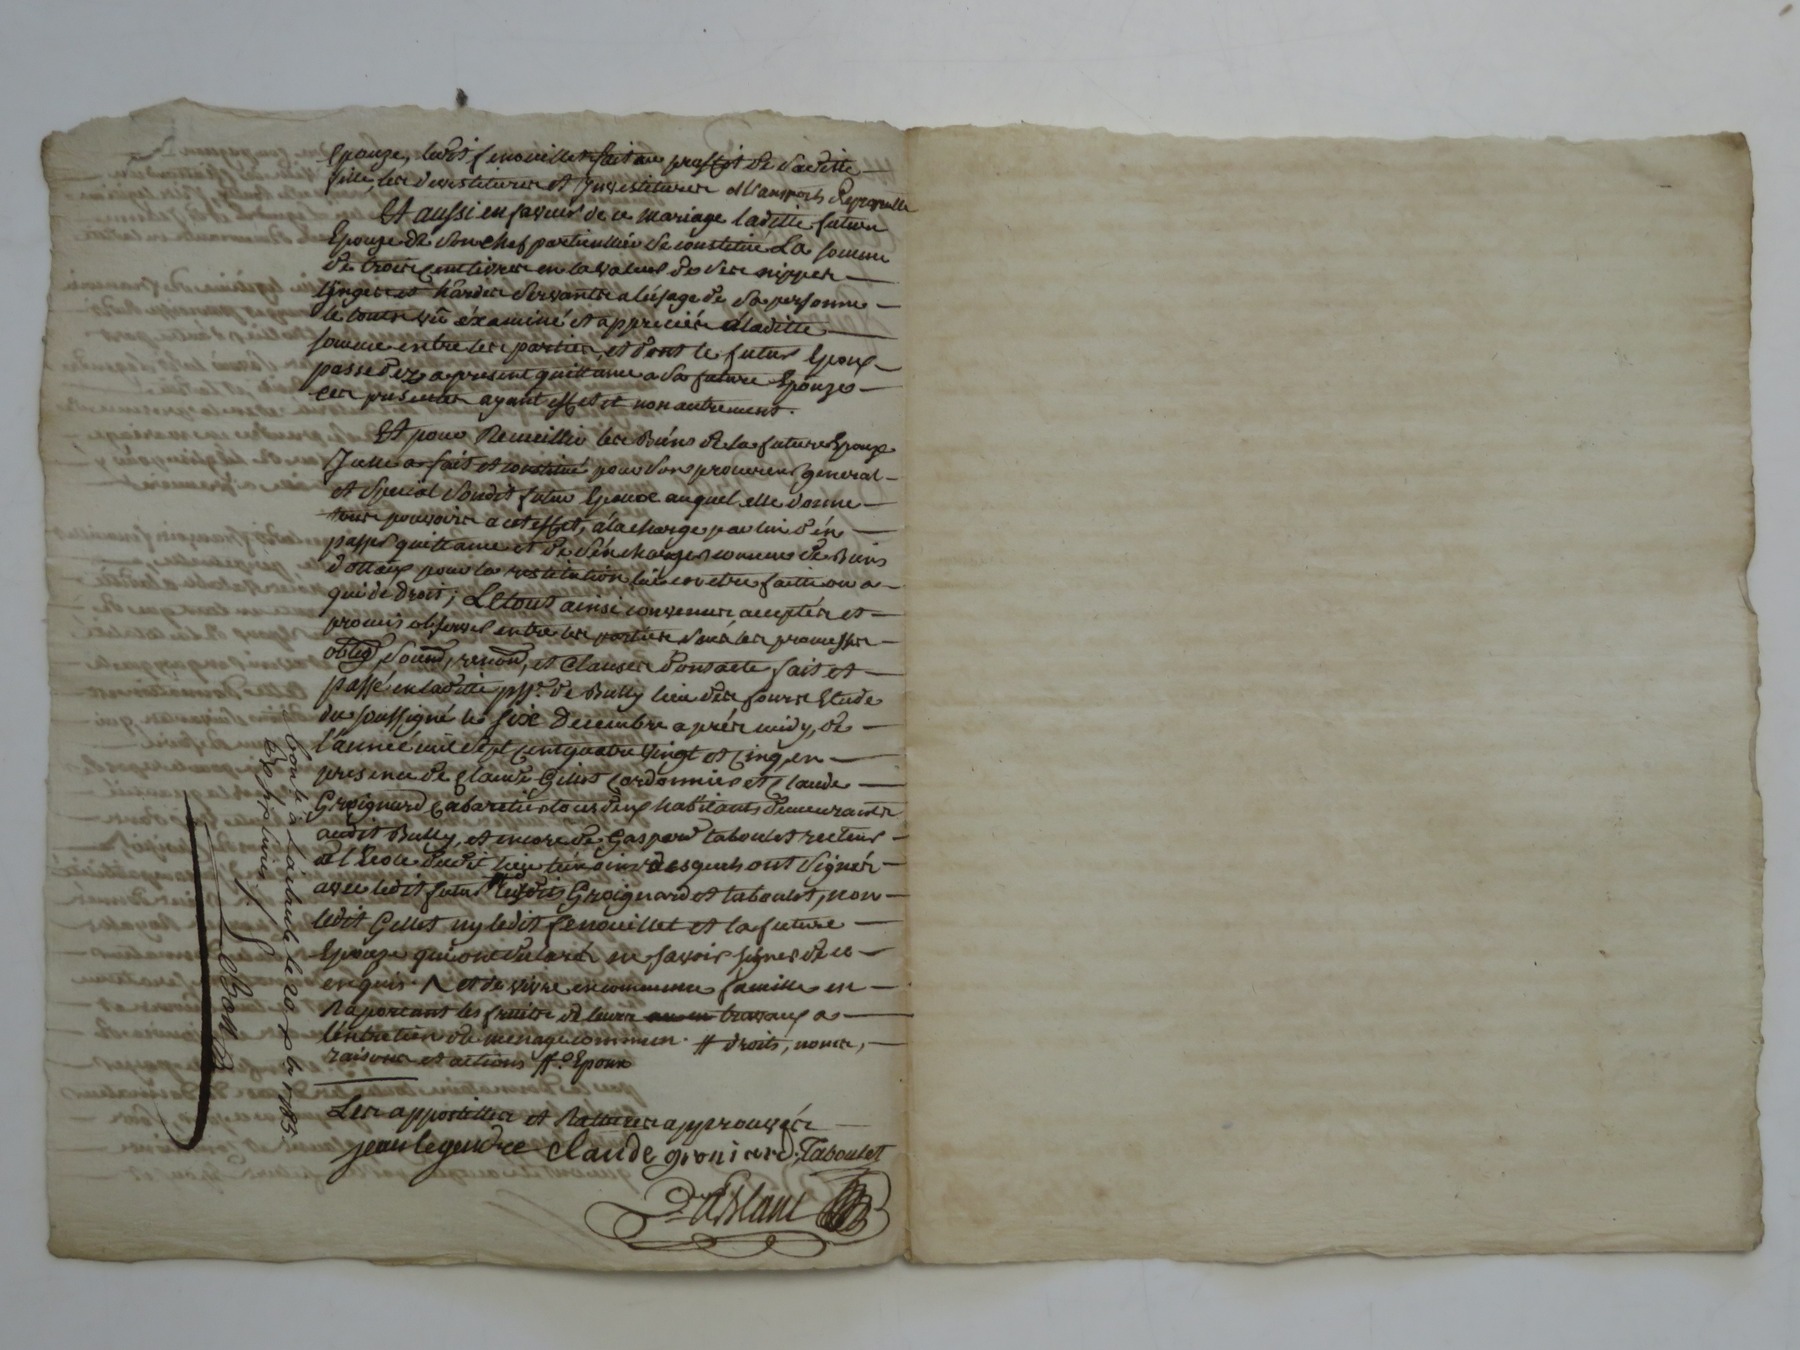 Epouze, ledit fenouillet fait au proffit de saditte
fille, les devestitures et Investitures et transports
Et aussi en faveur de ce mariage laditte future
Epouze de son chef particullier se constitue La somme
de trois cent livres en la valeur de ses nippes
linges et hardes servantes a lusage de sa personne
le tout vû éxaminé et appreciés a laditte
somme entre les parties, et dont le futur Epoux
passe déz a present quittance a sa future Epouze
ces présentes ayant effet et non autrement.
Et pour Recueillir les Biens de la future Epouze
Icelle a fait et constitué pour son procureur general
et special sondit futur Epoux auquel elle donne
tous pouvoirs a cet effet, a la charge par lui d'en
passer quittance et de s'en charger comme de Biens
dottaux pour la restitution lui en etre faitte ou a
qui de droit; Le tout ainsi convenu accepté et
promis observer entre les parties sous les promesses
oblig. soum, renon, et clauses dont acte fait et
passé en laditte pss.e de Bully lieu des fours Etude
du soussigné le six Decembre après midy, de
l'année mil sept cent quatre vingt et cinq en
presence de Claude Gillet Cordonnier et Claude
Groignard Cabaretier tous deux habitants demeurants
audit Bully, et encore de Gaspard taboulet recteur
de l'Ecole dudit lieu témoins lesquels ont signés
avec ledit futur lesdits Groignard et taboulet, non
ledit Gillet ny ledit fenouillet et la future
Epouze qui ont declaré ne savoir signer de ce
enquis. ^ et de vivre en commune famille en
Raportant les fruits de leurs travaux a
l'entretien du menage commun. # droits, noms,
raisons et actions #. Epoux
Les appostilles et Ratures approuvées
jean legendre claude groniard Taboulet
DeBlanc
Controllé à Larbresle le 20 Xbre 1785